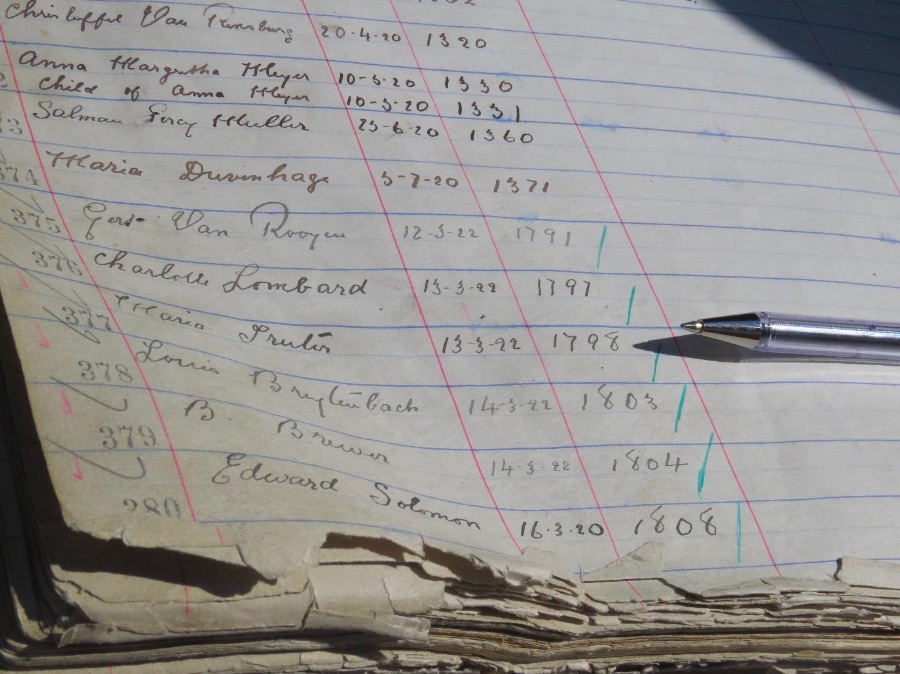 Christoffel Van Rensburg 20-4-20 1320
Anna Margretha Meyer 10-3-20 1330
Child of Anna Meyer 10-3-20 1331
Salman Percy Muller 25-6-20 1360
374 Maria Duvenhage 3-7-20 1371
375 Gert Van Rooyen 12-3-22 1791
376 Charlotte Lombard 13-3-22 1797
377 Maria Truter 13-3-22 1798
378 Louis Breytenbach 14-3-22 1803
379 B. Brewer 14-3-22 1804
380 Edward Solomon 16-3-20 1808